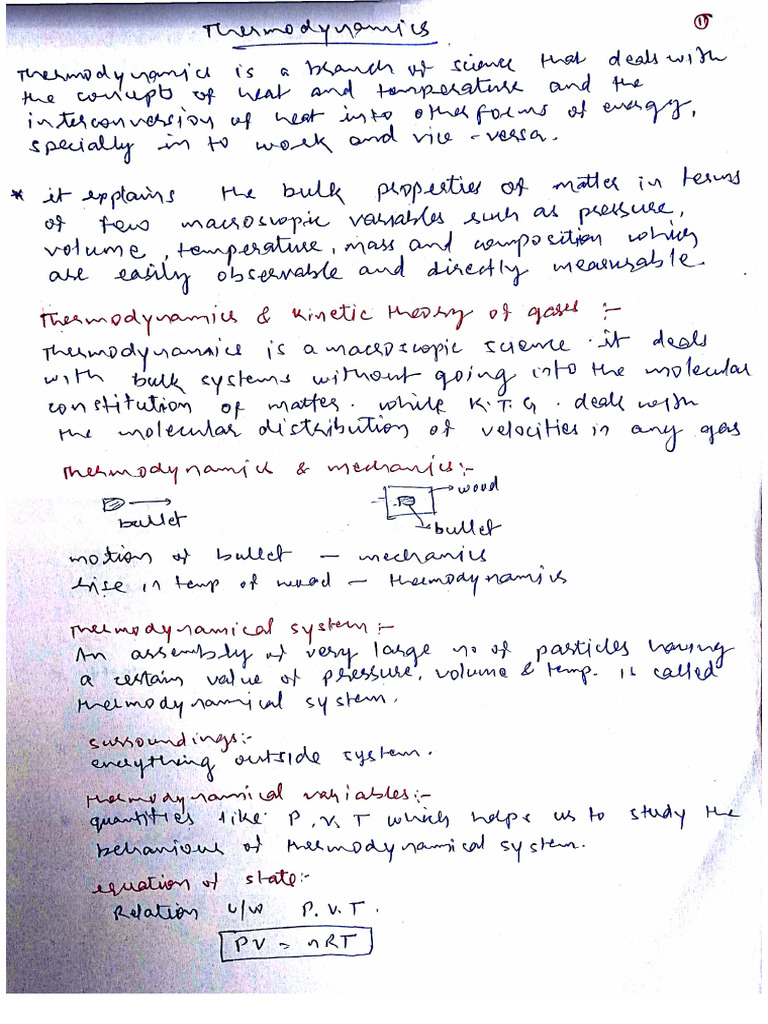 Thermodynamics
Thermodynamics is a branch of science that deals with
the concept of heat and temperature and the
interconversion of heat into other forms of energy,
specially in to work and vice-versa.
* it explains the bulk properties of matter in terms
of few macroscopic variables such as pressure,
volume, temperature, mass and composition which
are easily observable and directly measurable.
Thermodynamics & Kinetic theory of gases :-
Thermodynamics is a macroscopic science. it deals
with bulk systems without going into the molecular
constitution of matter. while K.T.G. deals with
the molecular distribution of velocities in any gas
Thermodynamics & mechanics:-
wood
bullet
bullet
motion of bullet — mechanics
rise in temp of wood — thermodynamics
Thermodynamical system:-
An assembly of very large no of particles having
a certain value of pressure, volume & temp. is called
thermodynamical system.
surroundings:-
everything outside system.
thermodynamical variables:-
quantities like P, V, T which helps us to study the
behaviour of thermodynamical system.
equation of state:-
Relation b/w P.V.T.
PV = nRT